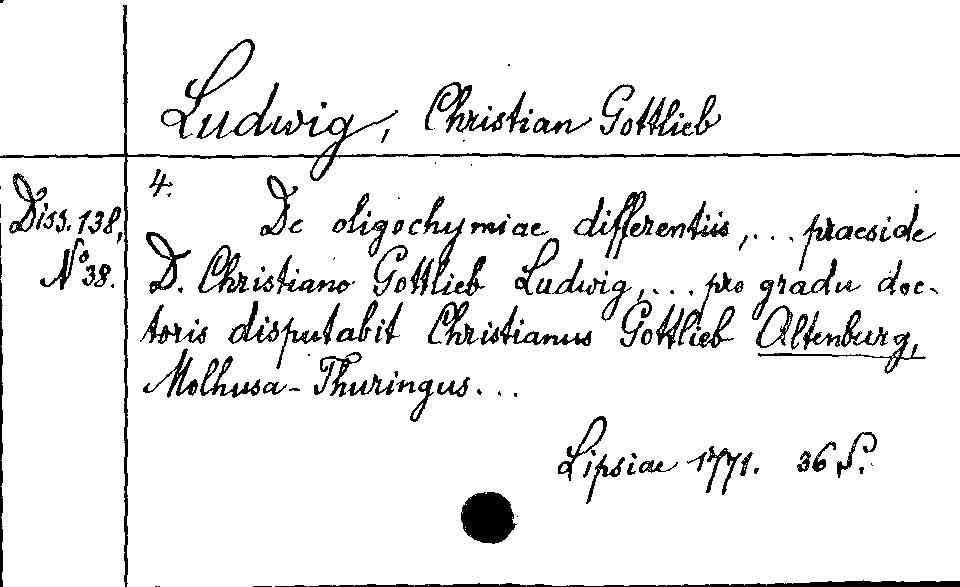 Ludwig, Christian Gottlieb
Diss. 138,
No 38.
4.
De oligochymiae differentiis, ... praeside
D. Christiano Gottlieb Ludwig, ... pro gradu doc-
toris disputabit Christianus Gottlieb Altenburg,
Molhusa-Thuringus...
Lipsiae 1771. 36 S.